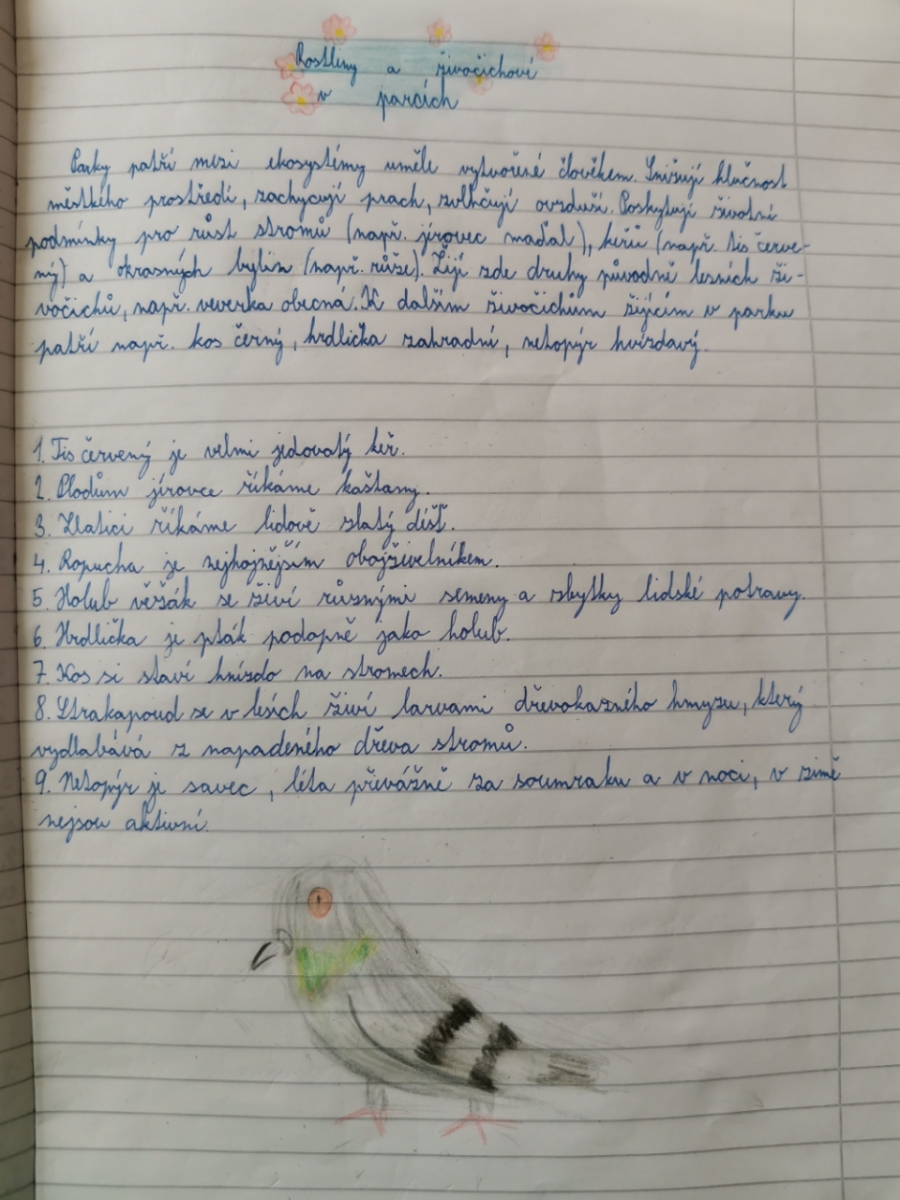 Rostliny a živočichové
v parcích
Parky patří mezi ekosystémy uměle vytvořené člověkem. Snižují hlučnost
městkého prostředí, zachycují prach, zvlhčují ovzduší. Poskytují životní
podmínky pro růst stromů (např. jírovec maďal), keřů (např. tis červe-
ný) a okrasných bylin (např. růže). Žijí zde druhy původně lesních ži-
vočichů, např. veverka obecná. K dalším živočichům žijícím v parku
patří např. kos černý, hrdlička zahradní, netopýr hvízdavý.
1. Tis červený je velmi jedovatý keř.
2. Plodům jírovce říkáme kaštany.
3. Zlatici říkáme lidově zlatý déšť.
4. Ropucha je nejhojnějším obojživelníkem.
5. Holub věžák se živí různými semeny a zbytky lidské potravy.
6. Hrdlička je pták podapně jako holub.
7. Kos si staví hnízdo na stromech.
8. Strakapoud se v lesích živí larvami dřevokazného hmyzu, který
vydlabává z napadeného dřeva stromů.
9. Netopýr je savec, léta převážně za soumraku a v noci, v zimě
nejsou aktivní.